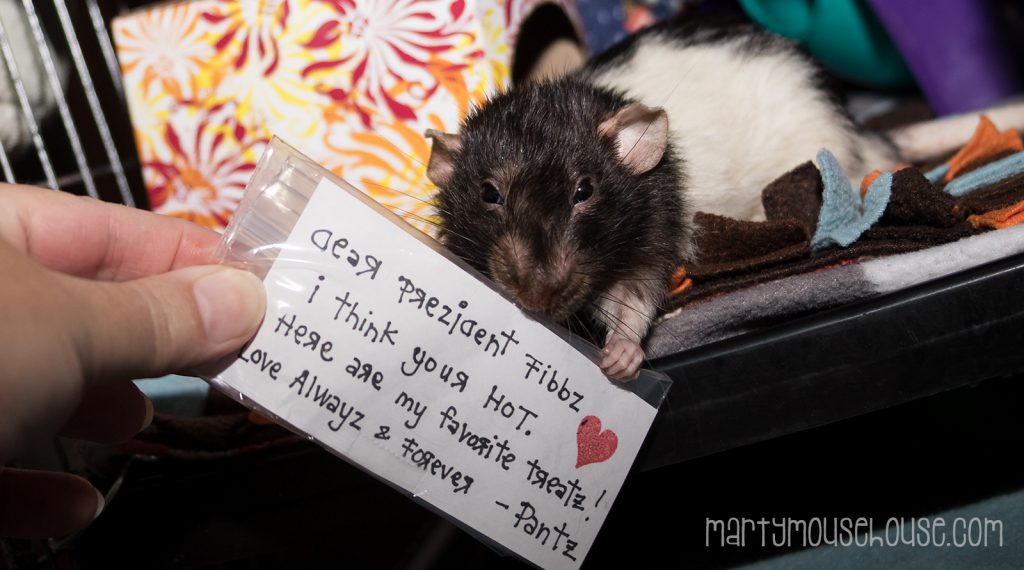 Dear Prezident Fibbz
i think your HOT.
Here are my favorite treatz!
Love Alwayz & Forever
-Pantz
martymousehouse.com